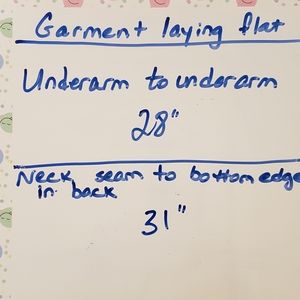 Garment laying flat
Underarm to underarm
28"
Neck seam to bottom edge
in back
31"